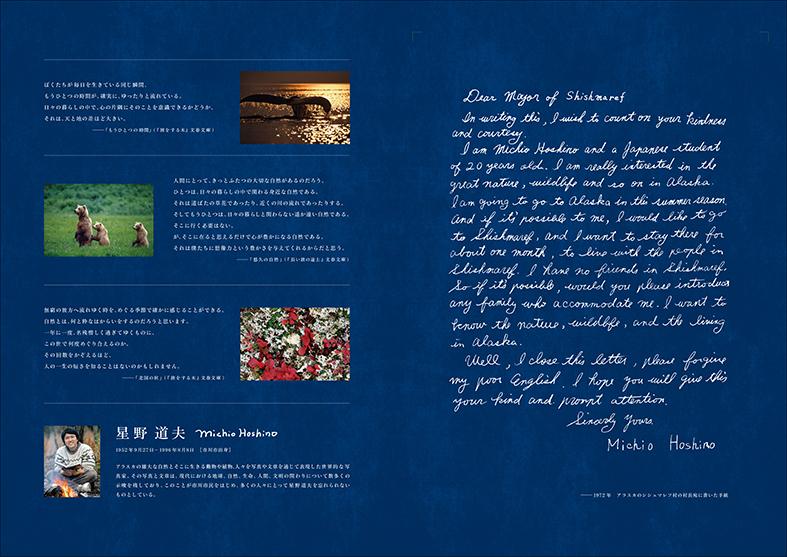 ぼくたちが毎日を生きている同じ瞬間、
もうひとつの時間が、確実に、ゆったりと流れている。
日々の暮らしの中で、心の片隅にそのことを意識できるかどうか、
それは、天と地の差ほど大きい。
——「もうひとつの時間」(『旅をする木』文春文庫)
人間にとって、きっとふたつの大切な自然があるのだろう。
ひとつは、日々の暮らしの中で関わる身近な自然である。
それは道ばたの草花であったり、近くの川の流れであったりする。
そしてもうひとつは、日々の暮らしと関わらない遥か遠い自然である。
そこに行く必要はない。
が、そこに在ると思えるだけで心が豊かになる自然である。
それは僕たちに想像力という豊かさを与えてくれるからだと思う。
——「悠久の自然」(『長い旅の途上』文春文庫)
無窮の彼方へ流れゆく時を、めぐる季節で確かに感じることができる。
自然とは、何と粋なはからいをするのだろうと思います。
一年に一度、名残惜しく過ぎてゆくものに、
この世で何度めぐり合えるのか。
その回数をかぞえるほど、
人の一生の短さを知ることはないのかもしれません。
——「北国の秋」(『旅をする木』文春文庫)
星野 道夫 Michio Hoshino
1952年9月27日−1996年8月8日 [市川市出身]
アラスカの雄大な自然とそこに生きる動物や植物、人々を写真や文章を通じて表現した世界的な写
真家。その写真と文章は、現代における地球、自然、生命、人間、文明の関わりについて数多くの
示唆を残しており、このことが市川市民をはじめ、多くの人々にとって星野道夫を忘れられない
ものとしている。
Dear Mayor of Shishmaref
In writing this, I wish to count on your kindness
and courtesy.
I am Michio Hoshino and a Japanese student
of 20 years old. I am really interested in the
great nature, wildlife and so on in Alaska.
I am going to go to Alaska in this summer season
and if it's possible to me, I would like to go
to Shishmaref, and I want to stay there for
about one month, to live with the people in
Shishmaref. I have no friends in Shishmaref.
So if it's possible, would you please introduce
any family who accommodate me. I want to
know the nature, wildlife, and the living
in Alaska.
Well, I close this letter, please forgive
my poor English. I hope you will give this
your kind and prompt attention.
Sincerly yours.
Michio Hoshino
——1972年 アラスカのシシュマレフ村の村長宛に書いた手紙